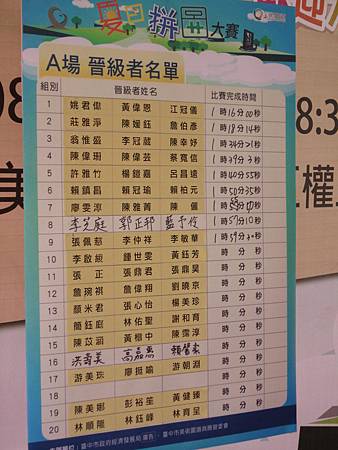 夏日拼圖大賽
A場 晉級者名單
組別 晉級者姓名 比賽完成時間
1 姚君偉 黃偉恩 江冠儀 1時16分00秒
2 莊雅淨 陳媛鈺 詹伯彥 1時18分14秒
3 翁惟盛 李冠葳 陳幸妤 1時34分21秒
4 陳偉珊 陳偉芸 蔡寬信 1時39分3秒
5 許雅竹 楊鎧嘉 呂昌遠 1時40分55秒
6 賴鎮昌 賴冠瑜 賴柏元 1時50分35秒
7 廖雯淳 陳雅菁 陳儀 1時55分秒
8 李芝庭 郭正邦 藍予伶 1時57分10秒
9 張佩慈 李仲祥 李敏華 1時59分30秒
10 李啟緞 鍾世雯 黃鈺芳 時 分 秒
11 張正 張鼎君 張鼎昊 時 分 秒
12 詹琬祺 詹偉翔 劉曉京 時 分 秒
13 顏米君 張心怡 楊美珍 時 分 秒
14 簡鈺庭 林佑聖 謝和育 時 分 秒
15 陳苡涵 黃楦中 陳霈淳 時 分 秒
16 洪秀美 高嘉鳳 時 分 秒
17 游美珠 廖挺瑜 游朝淵 時 分 秒
18 時 分 秒
19 陳美娜 彭裕笙 黃健臻 時 分 秒
20 林順龍 林鈺峰 林育呈 時 分 秒
臺中市政府經濟發展局 廣告
8:3
美
權